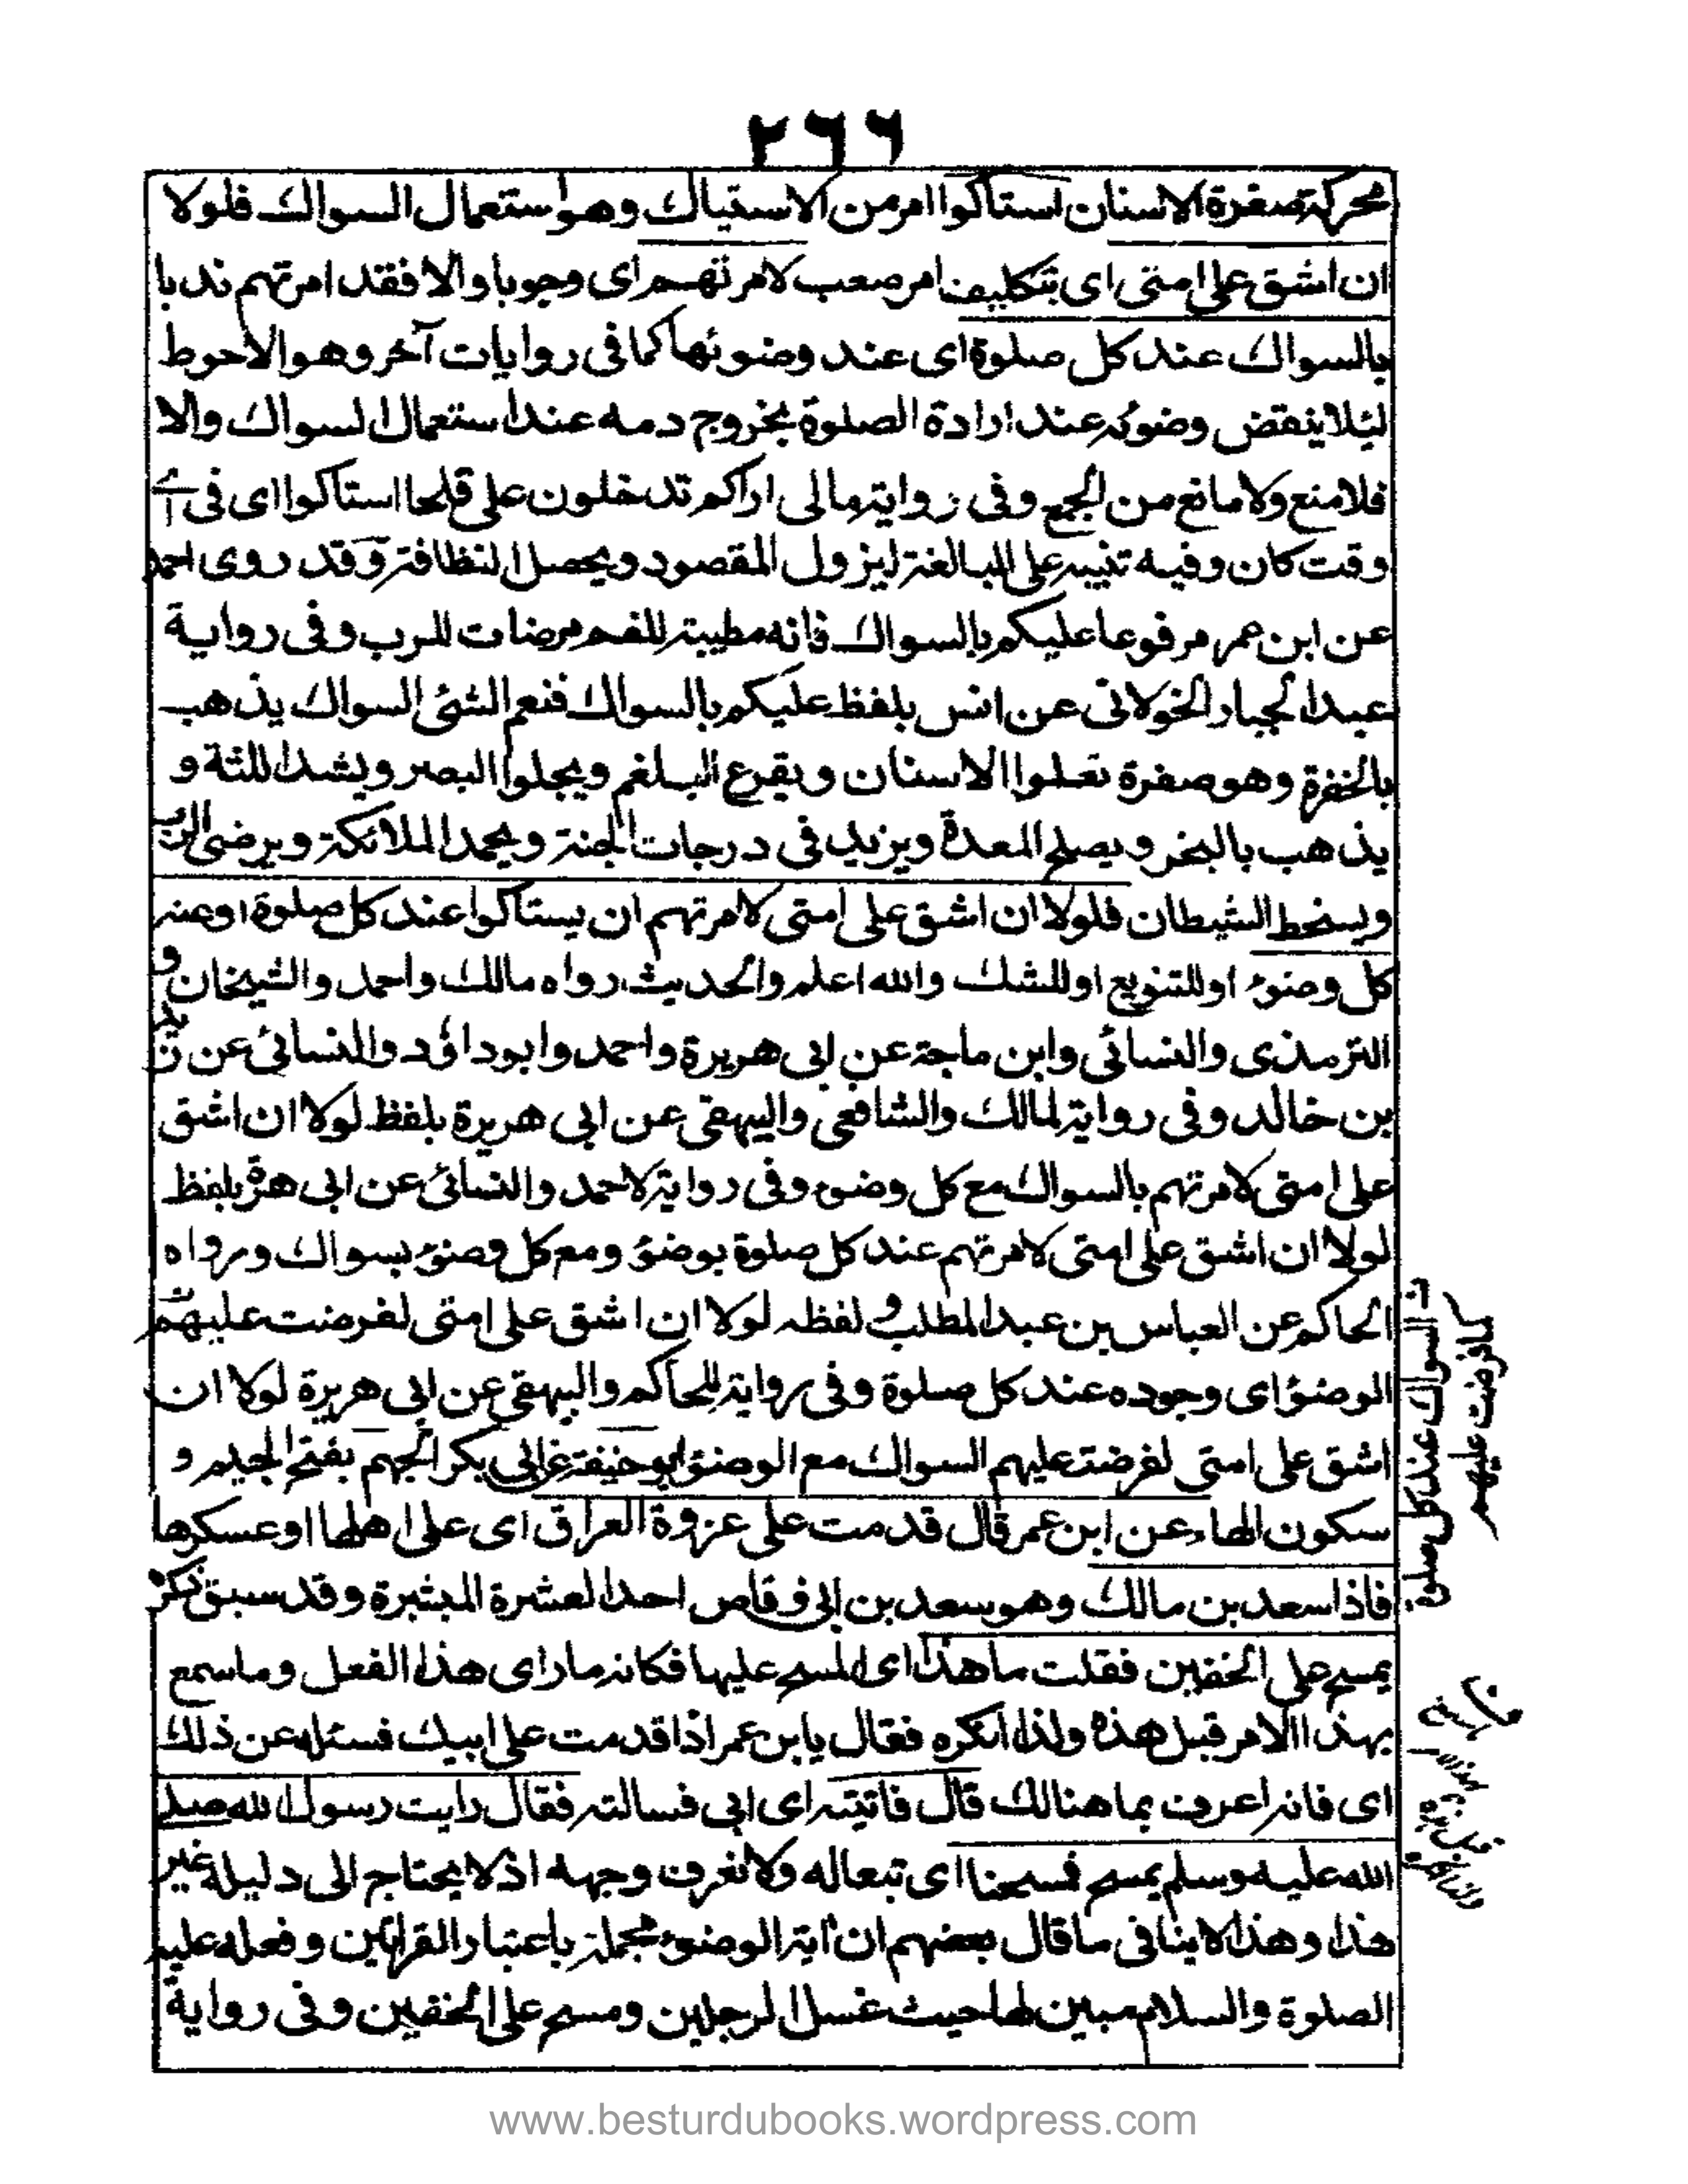 ٢٦٦
محركة صفرة الاسنان استاكوا امر من الاستياك وهو استعمال السواك فلولا
ان اشق على امتى اى بتكليف امر صعب لامرتهم اى وجوبا والا فقد امرتهم ندبا
بالسواك عند كل صلوة اى عند وضوئها كما فى روايات آخر وهو الاحوط
لئلا ينقض وضوئه عند ارادة الصلوة بخروج دمه عند استعمال السواك والا
فلا منع ولا مانع من الجمع وفى رواية مالى اراكم تدخلون على قلحا استاكوا اى فى اى
وقت كان وفيه تنبيه على المبالغة ليزول المقصود ويحصل النظافة وقد روى احمد
عن ابن عمر مرفوعا عليكم بالسواك فانه مطيبة للفم مرضات للرب وفى رواية
عبد الجبار الخولانى عن انس بلفظ عليكم بالسواك فنعم الشئ السواك يذهب
بالخفرة وهو صفرة تعلوا الاسنان ويقرع البلغم ويجلوا البصر ويشد اللثة و
يذهب بالبخر ويصلح المعدة ويزيد فى درجات الجنة ويحمد الملائكة ويرضى الرب
ويسخط الشيطان فلولا ان اشق على امتى لامرتهم ان يستاكوا عند كل صلوة او عند
كل وضوء او للتنويع او للشك والله اعلم والحديث رواه مالك واحمد والشيخان و
الترمذى والنسائى وابن ماجة عن ابى هريرة واحمد وابو داؤد والنسائى عن زيد
بن خالد وفى رواية لمالك والشافعى والبيهقى عن ابى هريرة بلفظ لولا ان اشق
على امتى لامرتهم بالسواك مع كل وضوء وفى رواية لاحمد والنسائى عن ابى هرة بلفظ
لولا ان اشق على امتى لامرتهم عند كل صلوة بوضؤ ومع كل وضوء بسواك ورواه
الحاكم عن العباس بن عبد المطلب ولفظه لولا ان اشق على امتى لفرضت عليهم
الوضؤ اى وجوده عند كل صلوة وفى رواية للحاكم والبيهقى عن ابى هريرة لولا ان
اشق على امتى لفرضت عليهم السواك مع الوضؤ ابو حنيفة عن ابى بكر الجهم بفتح الجيم و
سكون الهاء عن ابن عمر قال قدمت على غزوة العراق اى على اهلها او عسكرها
فاذا سعد بن مالك وهو سعد بن ابى وقاص احد العشرة المبشرة وقد سبق ذكره
يمسح على الخفين فقلت ما هذا اى المسح عليها فكانه ما راى هذا الفعل وما سمع
بهذا الامر قبل هذه ولذا انكره فقال يا بن عمر اذا قدمت على ابيك فسئله عن ذلك
اى فانه اعرف بما هنالك قال فاتيته اى ابى فسالته فقال رايت رسول الله صلى
الله عليه وسلم يمسح فمسحنا اى تبعاله ولا نعرف وجهه اذ لا يحتاج الى دليله غير
هذا وهذا لا ينافى ما قال بعضهم ان آية الوضوء مجملة باعتبار القرائين وفعله عليه
الصلوة والسلام مبين لها حيث غسل الرجلين ومسح على الخفين وفى رواية
السواك عند كل صلوة
كما فرضت عليهم
www.besturdubooks.wordpress.com